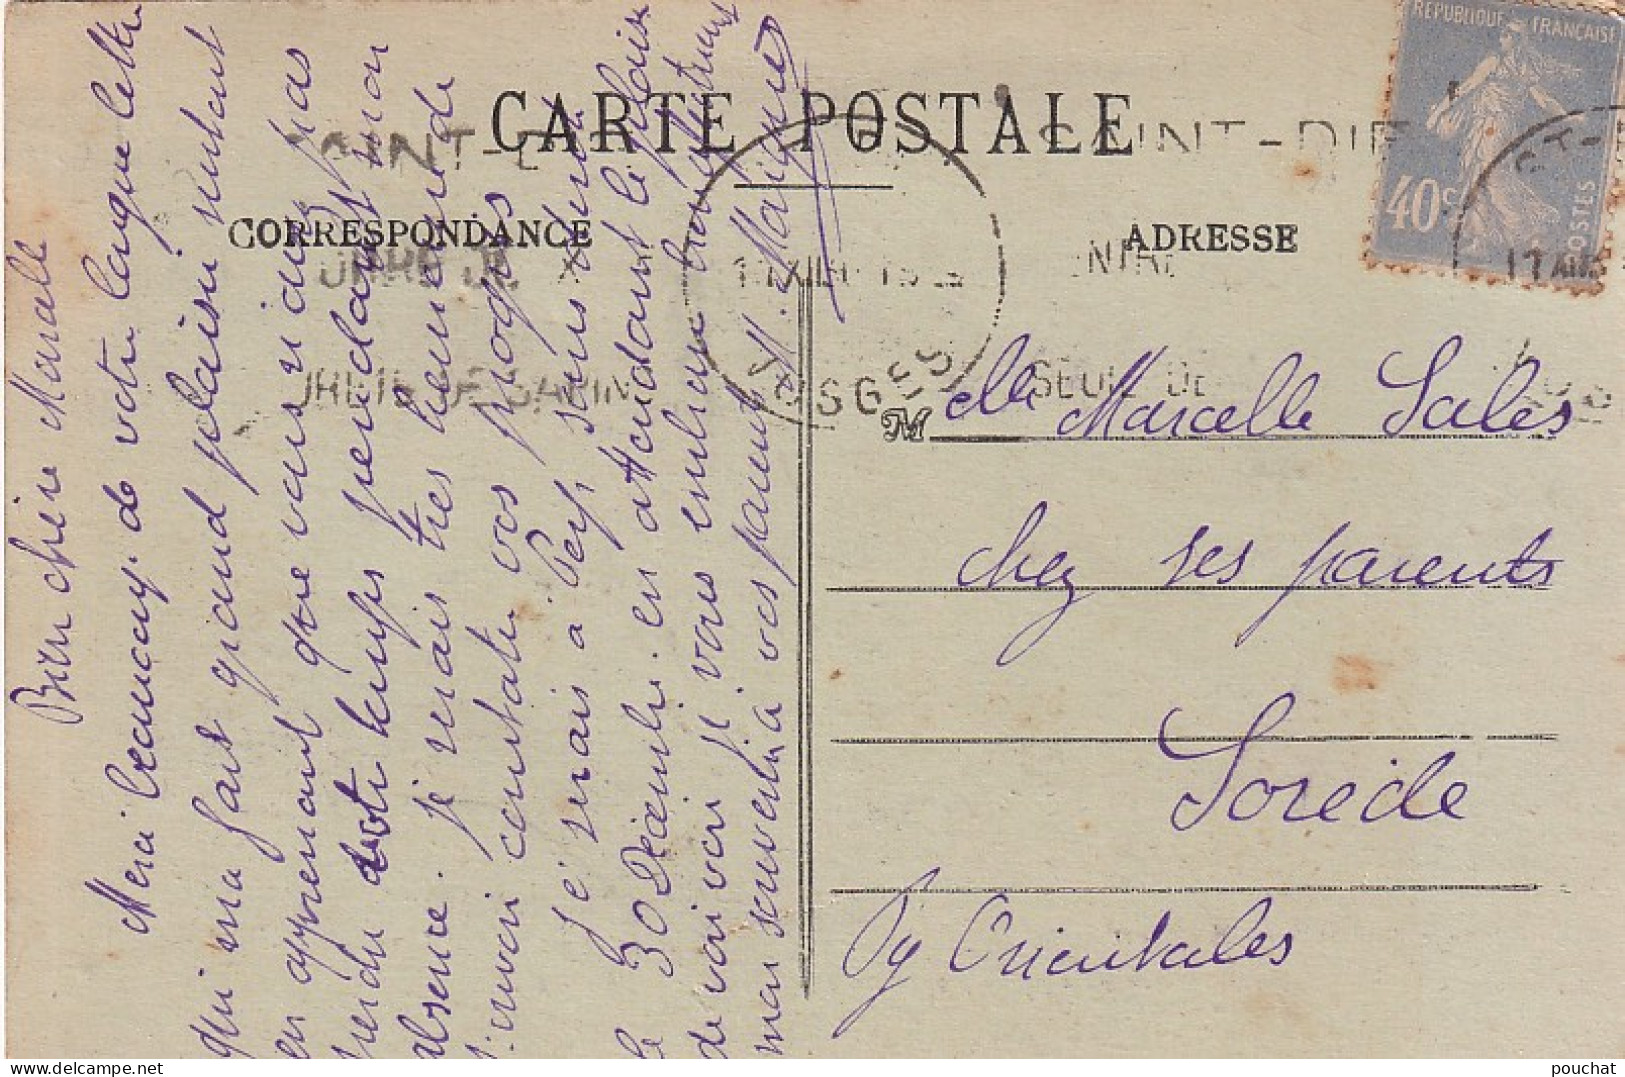 CARTE POSTALE
CORRESPONDANCE
ADRESSE
REPUBLIQUE FRANCAISE
40c
POSTES
ST-
17
SAINT-DIE
SEUIL DE
VOSGES
Bien chère Marcelle
Merci beaucoup de votre longue lettre
qui ma fait grand plaisir surtout
en apprenant que vous n'avez pas
perdu votre temps pendant mon
absence. je serais très heureuse de
pouvoir constater vos progrès
je serais à Perp. sans doute
le 30 Décembre. en attendant le plaisir
de vous voir je vous embrasse
mon souvenir à vos parents M. Maignes
Mlle Marcelle Sales
chez ses parents
Sorède
Py Orientales
pouchat